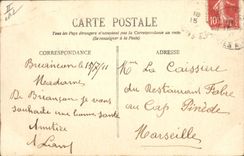 CARTE POSTALE
Tous les Pays étrangers n'acceptent pas la Correspondance au verso
(Se renseigner à la Poste)
CORRESPONDANCE
Besançon le 15/7/11
Madame
De Besançon je vous
souhaite une bonne santé
Amitiés
Mme La Caissière
du Restaurant Fabre
au Cap Pinède
Marseille
10